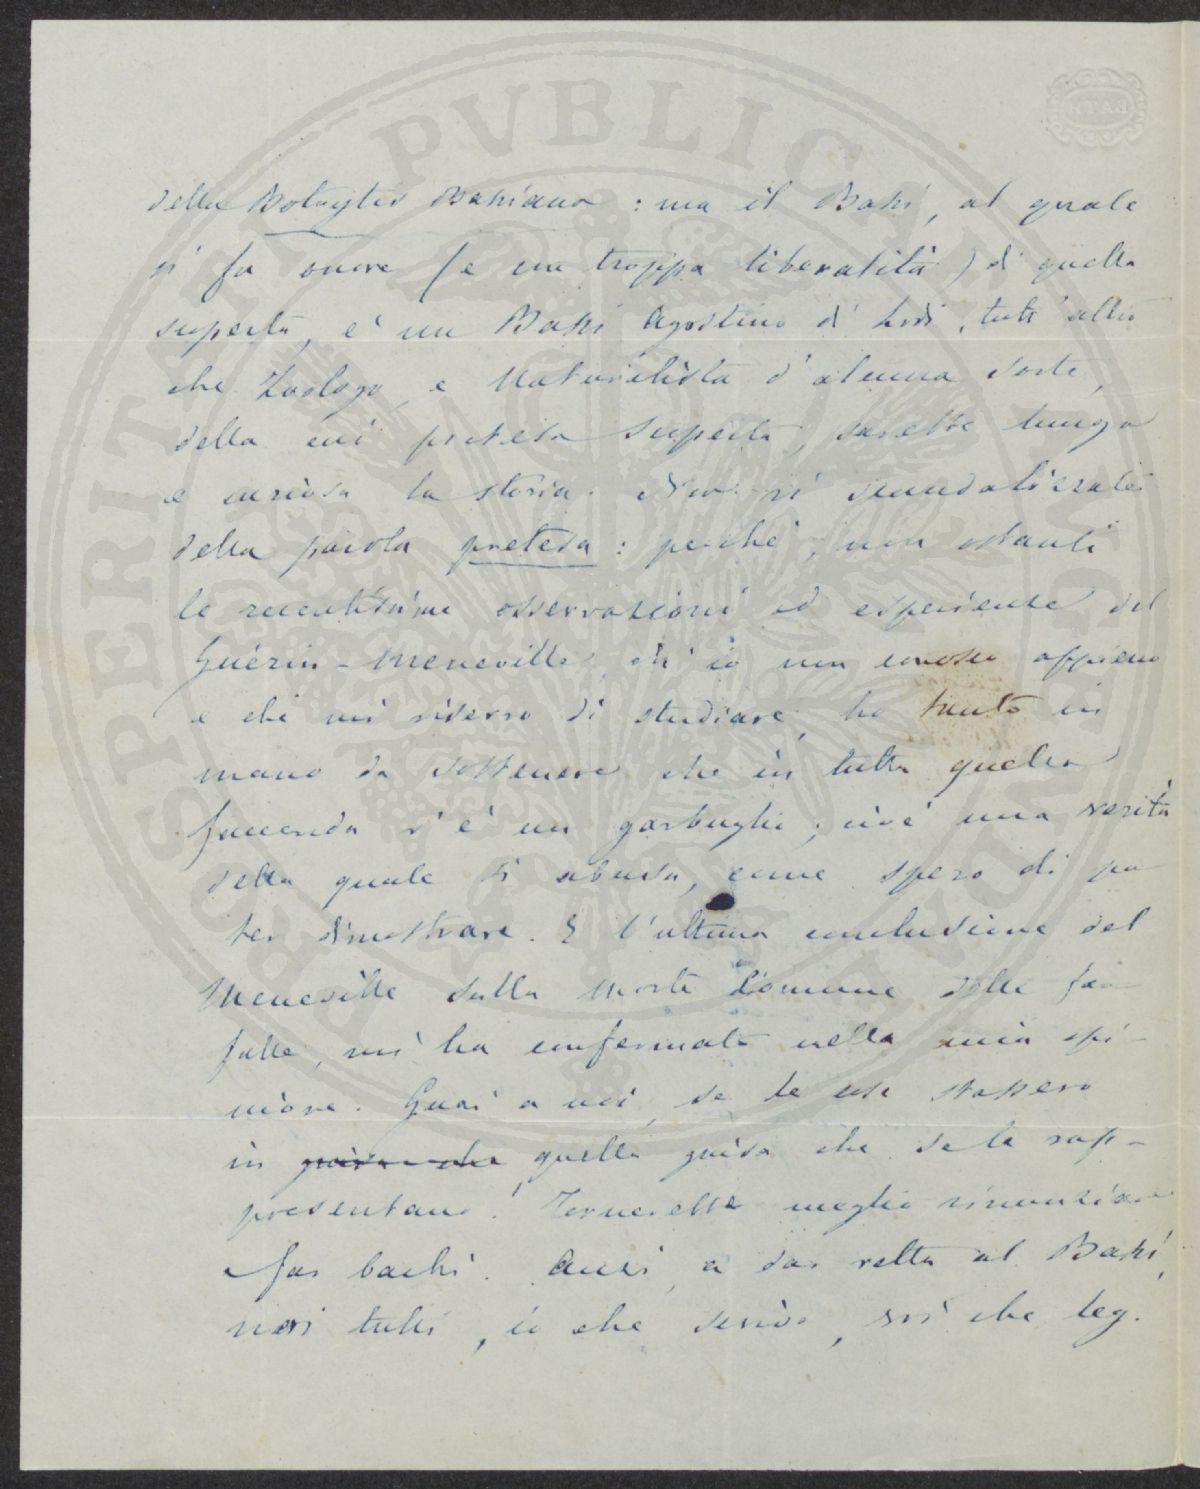 della Botrytis Bassiana : ma il Bassi, al quale
si fa onore (e con troppa liberalità) di quella
scoperta, è un Bassi Agostino di Lodi, tutt'altro
che Zoologo, e Naturalista d'alcuna sorte,
della cui pretesa scoperta, sarebbe lunga
e curiosa la storia. Non si scandalizzi
della parola pretesa : perché, non ostanti
le recentissime osservazioni ed esperienze del
Guérin-Meneville, ch'io non conosco appieno
e che mi riservo di studiare, ho tanto in
mano da sostenere che in tutta quella
faccenda v'è un garbuglio, cioè una verità
della quale si abusa, come spero di po-
ter dimostrare. E l'ultima conclusione del
Meneville sulla morte comune delle far-
falle, mi ha confermato nella mia opi-
nione. Guai a noi, se le cose stassero
in guisa che quella guisa che se le rap-
presentano! Tornerebbe meglio rinunziare
a far bachi. Anzi, a dar retta al Bassi,
noi tutti, io che scrivo, voi che leg.
PVBLIC
PROSPERITATI
BATH